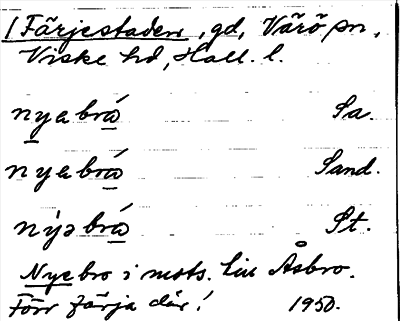 / Färjestaden, gd, Värö sn,
Viske hd, Hall. l.
nyabrá Sa.
nyabrá Sand.
nýəbrá St.
Nyebro i mots. till Åsbro.
Förr färja där! 1950.